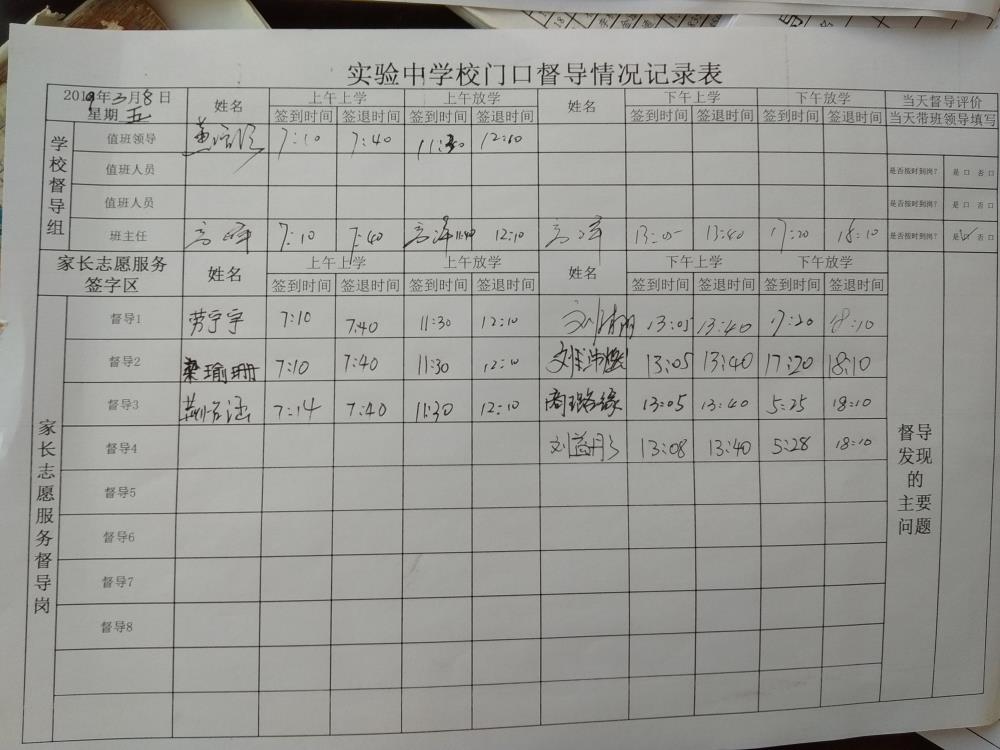 实验中学校门口督导情况记录表
2019年3月8日
星期 五
姓名 上午上学 上午放学 姓名 下午上学 下午放学 当天督导评价
签到时间 签退时间 签到时间 签退时间 签到时间 签退时间 签到时间 签退时间 当天带班领导填写
学校督导组
值班领导 7:10 7:40 11:30 12:10
值班人员 是否按时到岗? 是口 否口
值班人员 是否按时到岗? 是口 否口
班主任 7:10 7:40 11:40 12:10 13:05 13:40 17:20 18:10 是否按时到岗? 是 否口
家长志愿服务
签字区
姓名 上午上学 上午放学 姓名 下午上学 下午放学
签到时间 签退时间 签到时间 签退时间 签到时间 签退时间 签到时间 签退时间
家长志愿服务督导岗
督导1 劳宁宇 7:10 7:40 11:30 12:10 13:05 13:40 17:20 18:10
督导2 梁瑜珊 7:10 7:40 11:30 12:10 13:05 13:40 17:20 18:10
督导3 7:14 7:40 11:30 12:10 商璐缘 13:05 13:40 5:25 18:10
督导4 13:08 13:40 5:28 18:10
督导5
督导6
督导7
督导8
督导
发现
的
主要
问题